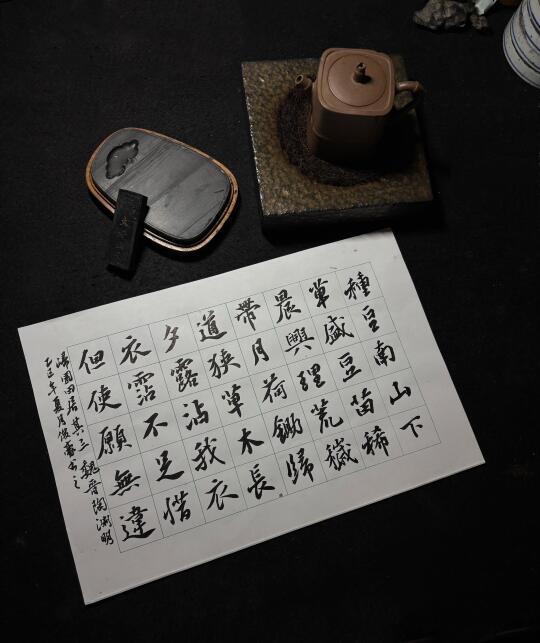 種豆南山下
草盛豆苗稀
晨興理荒穢
帶月荷鋤歸
道狹草木長
夕露沾我衣
衣霑不足惜
但使願無違
歸園田居其三 魏晉陶淵明
乙巳年夏月書之